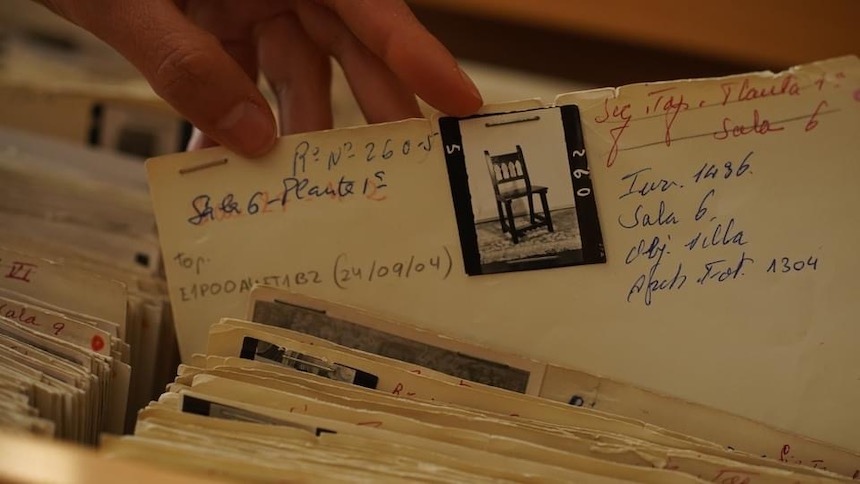 Rº Nº 260-5
Sala 6 - Planta 1ª
Top.
(24/09/04)
5
260
Seg. Top. Planta 1ª
Sala 6
Inv. 1496.
Sala 6.
Obj. silla
Arch. Fot. 1304
VI
Sala 9